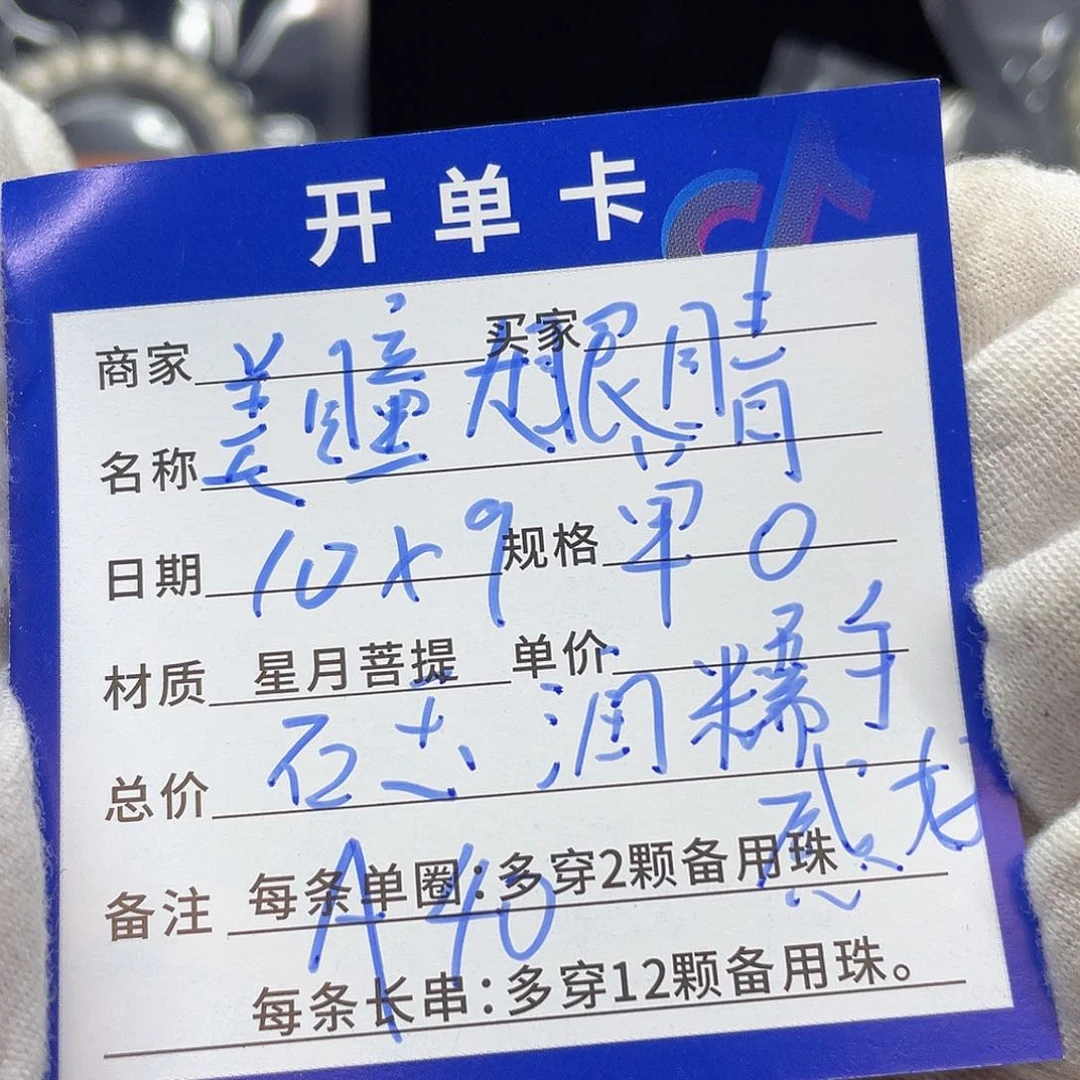 开单卡
商家 买家
美瞳大眼睛
名称
日期 规格
10x9 单0
材质 星月菩提 单价
润糯手感
总价
A40
备注 每条单圈：多穿2颗备用珠
每条长串：多穿12颗备用珠。